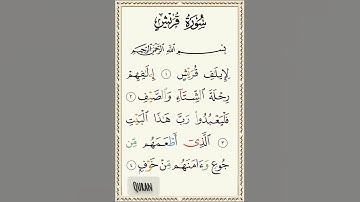 سُورَةُ قُرَيْشٍ
بِسْمِ اللَّهِ الرَّحْمَٰنِ الرَّحِيمِ
لِإِيلَٰفِ قُرَيْشٍ ١ إِۦلَٰفِهِمْ
رِحْلَةَ الشِّتَآءِ وَالصَّيْفِ ٢
فَلْيَعْبُدُوا۟ رَبَّ هَٰذَا الْبَيْتِ
٣ الَّذِىٓ أَطْعَمَهُم مِّن
جُوعٍ وَءَامَنَهُم مِّنْ خَوْفٍۭ ٤
QURAN